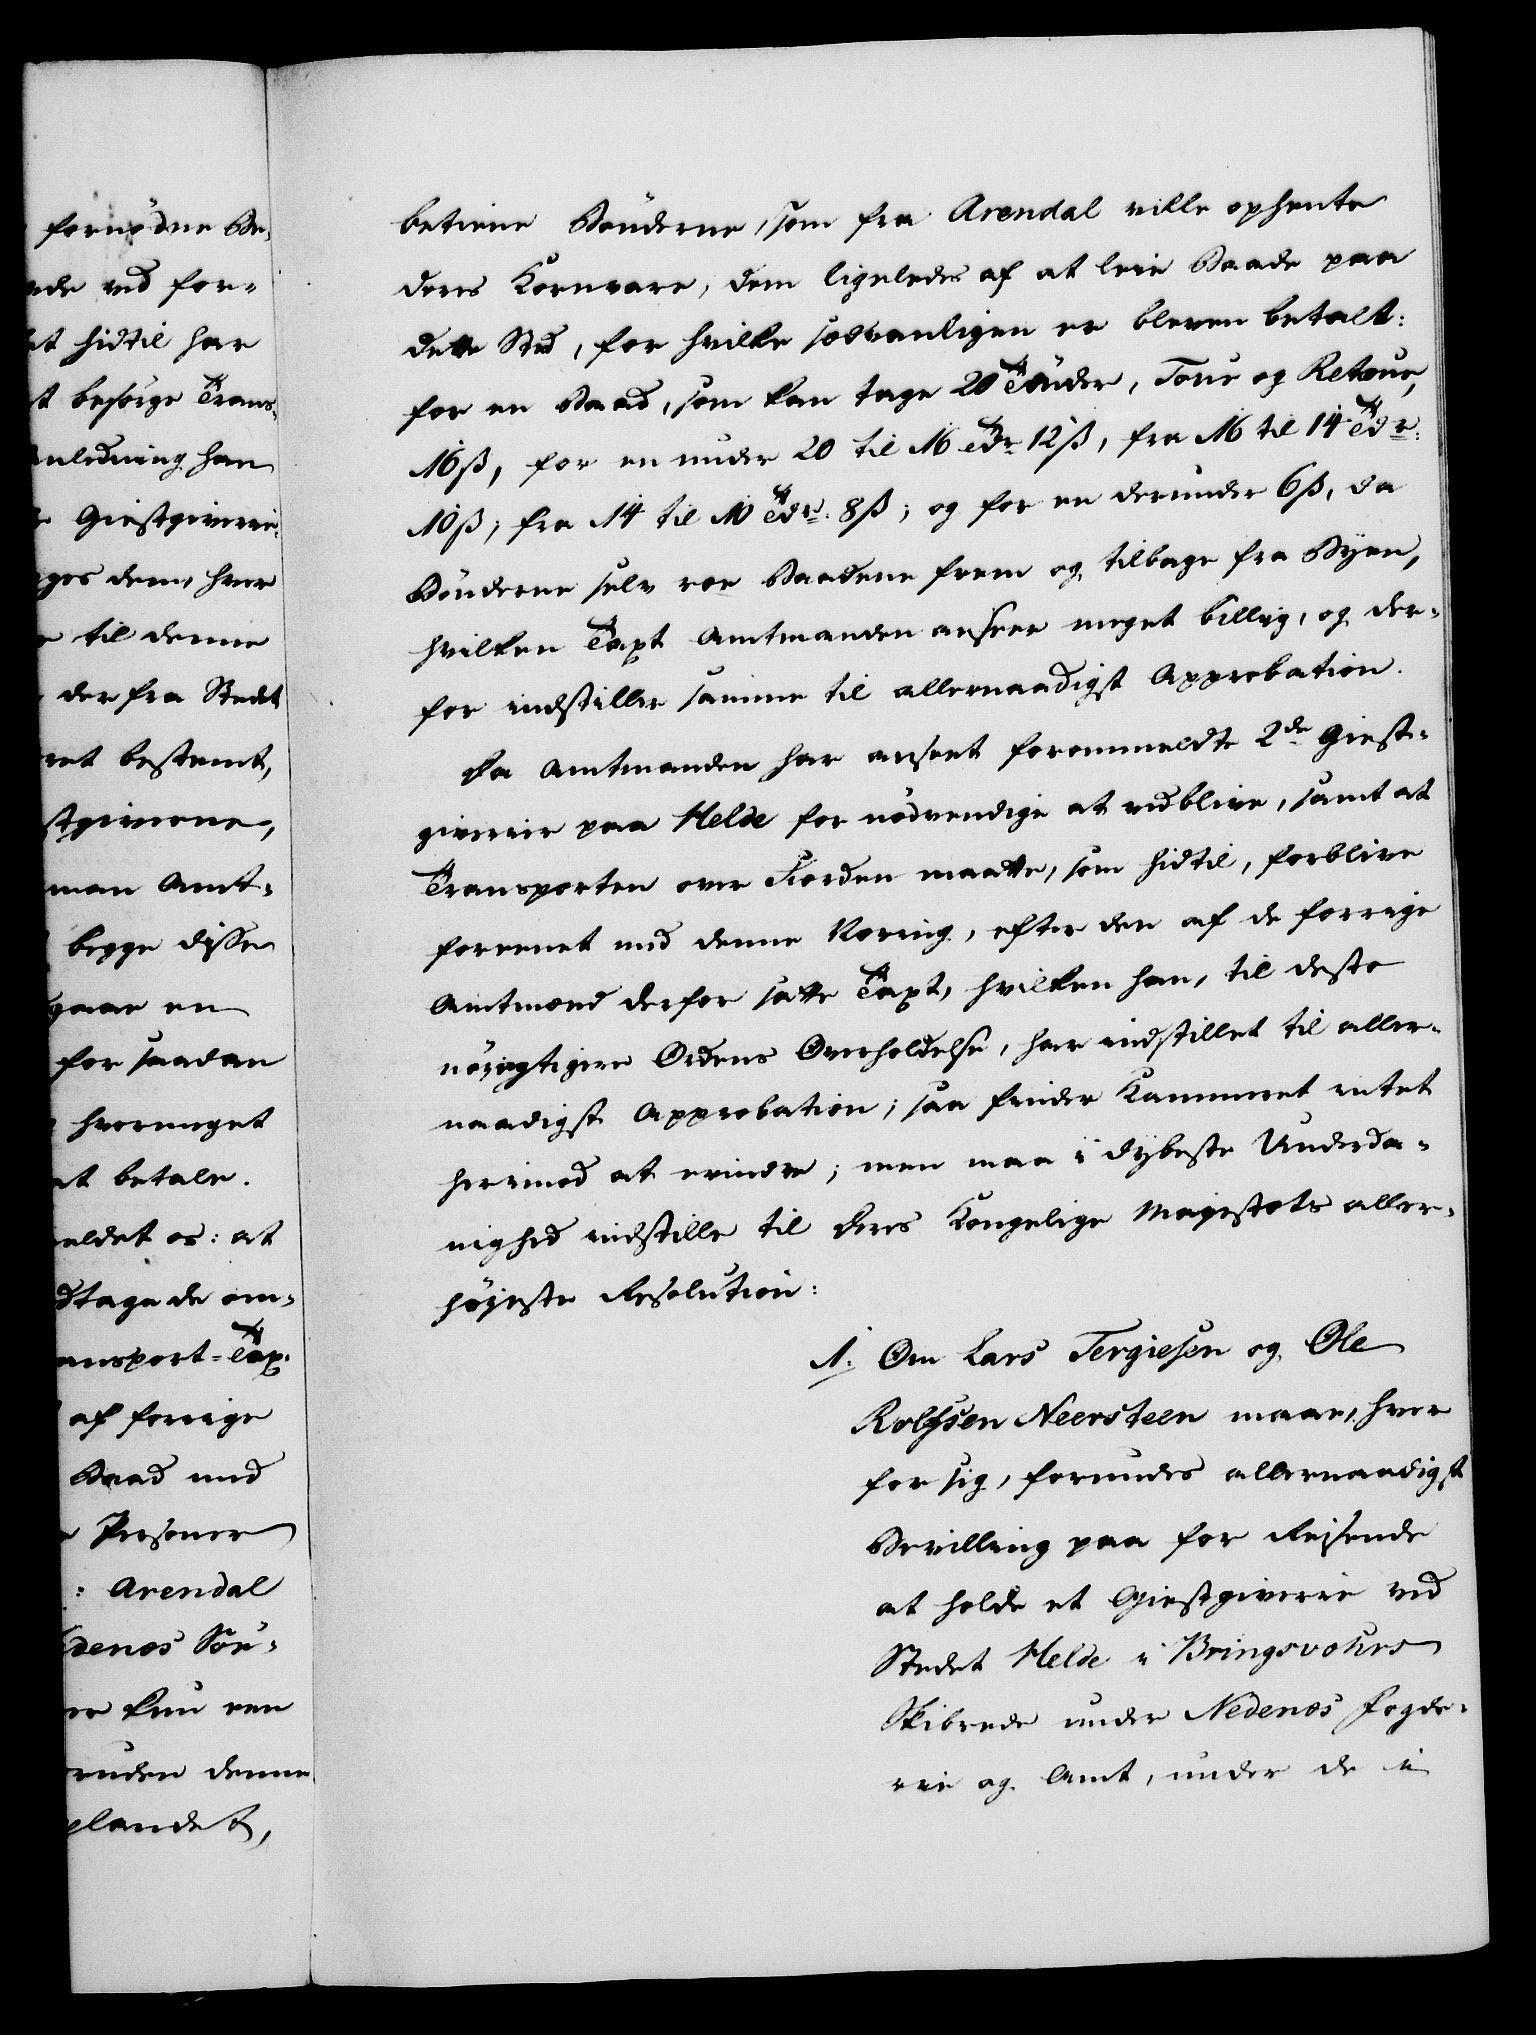 fornødne Be-
nde ved for-
et hidtil har
st besørge Trans-
Anledning han
Giestgiverie-
ges dem, hver
til denne
der fra Stedet
ret bestemt,
stgiverne,
man Amt-
begge disse
gaar en
for saadan
hvormeget
at betale.
meldet os: at
dtage de om-
ansport-Tax-
af forrige
Baad med
Personer
: Arendal
denæs Sør-
er kun een
runden denne
plandet,
betiene Bønderne, som fra Arendal ville ophente
deres Kornvare, dem ligeledes af at leie Baade paa
dette Sted, for hvilke sædvanligen er bleven betalt:
for en Baad, som kan tage 20 Tønder, Tour og Retour,
16 ß, for en under 20 til 16 Tdr. 12 ß, fra 16 til 14 Tdr.
10 ß; fra 14 til 10 Tdr. 8 ß; og for en derunder 6 ß, da
Bønderne selv roe Baadene frem og tilbage fra Byen,
hvilken Taxt Amtmanden anseer meget billig, og der-
for indstiller samme til allernaadigst Approbation.
Da Amtmanden har anseet forommeldte 2de Giest-
giverier paa Helde for nødvendige at vedblive, samt at
Transporten over Fiorden maatte, som hidtil, forblive
foreenet med denne Næring, efter den af de forrige
Amtmænd derfor satte Taxt, hvilken han, til deste
nøiagtigere Ordens Overholdelse, har indstillet til aller-
naadigst Approbation; saa finder Kammeret intet
herimod at erindre; men maa i dybeste Underda-
nighed indstille til Deres Kongelige Majestæts aller-
høyeste Resolution:
1. Om Lars Tergiesen og Ole
Rolfsen Neersteen maae, hver
for sig, forundes allernaadigst
Bevilling paa for Reisende
at holde et Giestgiverie ved
Stedet Helde i Bringsvohrs
Skibrede under Nedenæs Fogde-
rie og Amt, under de i